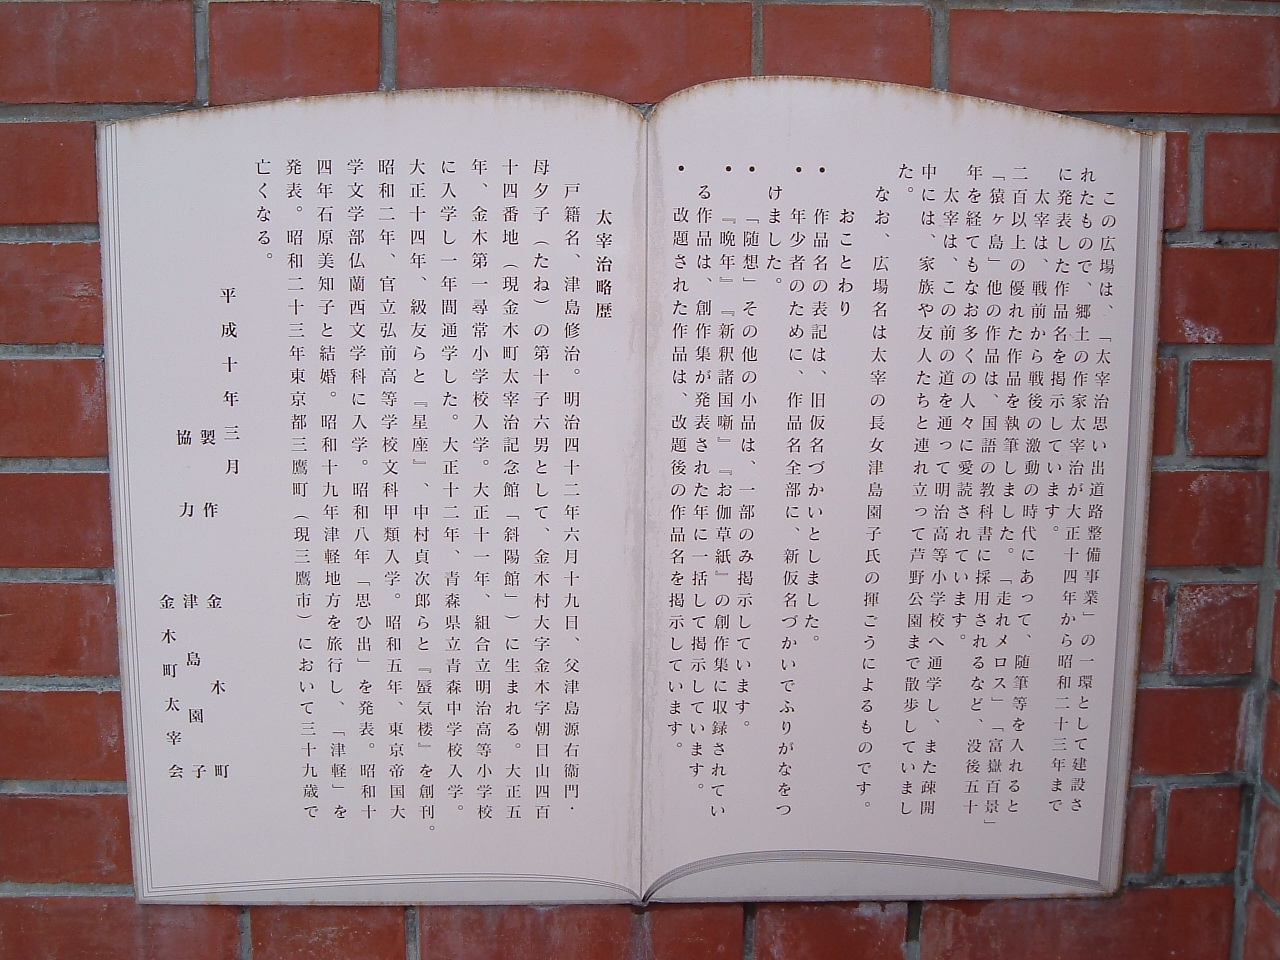 この広場は、「太宰治思い出道路整備事業」の一環として建設さ
れたもので、郷土の作家太宰治が大正十四年から昭和二十三年まで
に発表した作品名を掲示しています。
太宰は、戦前から戦後の激動の時代にあって、随筆等を入れると
二百以上の優れた作品を執筆しました。「走れメロス」「富嶽百景」
「猿ヶ島」他の作品は、国語の教科書に採用されるなど、没後五十
年を経てもなお多くの人々に愛読されています。
太宰は、この前の道を通って明治高等小学校へ通学し、また疎開
中には、家族や友人たちと連れ立って芦野公園まで散歩していまし
た。
なお、広場名は太宰の長女津島園子氏の揮ごうによるものです。
おことわり
・作品名の表記は、旧仮名づかいとしました。
・年少者のために、作品名全部に、新仮名づかいでふりがなをつ
けました。
・「随想」その他の小品は、一部のみ掲示しています。
・『晩年』『新釈諸国噺』『お伽草紙』の創作集に収録されてい
る作品は、創作集が発表された年に一括して掲示しています。
・改題された作品は、改題後の作品名を掲示しています。
太宰治略歴
戸籍名、津島修治。明治四十二年六月十九日、父津島源右衛門・
母夕子（たね）の第十子六男として、金木村大字金木字朝日山四百
十四番地（現金木町太宰治記念館「斜陽館」）に生まれる。大正五
年、金木第一尋常小学校入学。大正十一年、組合立明治高等小学校
に入学し一年間通学した。大正十二年、青森県立青森中学校入学。
大正十四年、級友らと『星座』、中村貞次郎らと『蜃気楼』を創刊。
昭和二年、官立弘前高等学校文科甲類入学。昭和五年、東京帝国大
学文学部仏蘭西文学科に入学。昭和八年「思ひ出」を発表。昭和十
四年石原美知子と結婚。昭和十九年津軽地方を旅行し、「津軽」を
発表。昭和二十三年東京都三鷹町（現三鷹市）において三十九歳で
亡くなる。
平成十年三月
製作 金木町
協力 津島園子
金木町太宰会